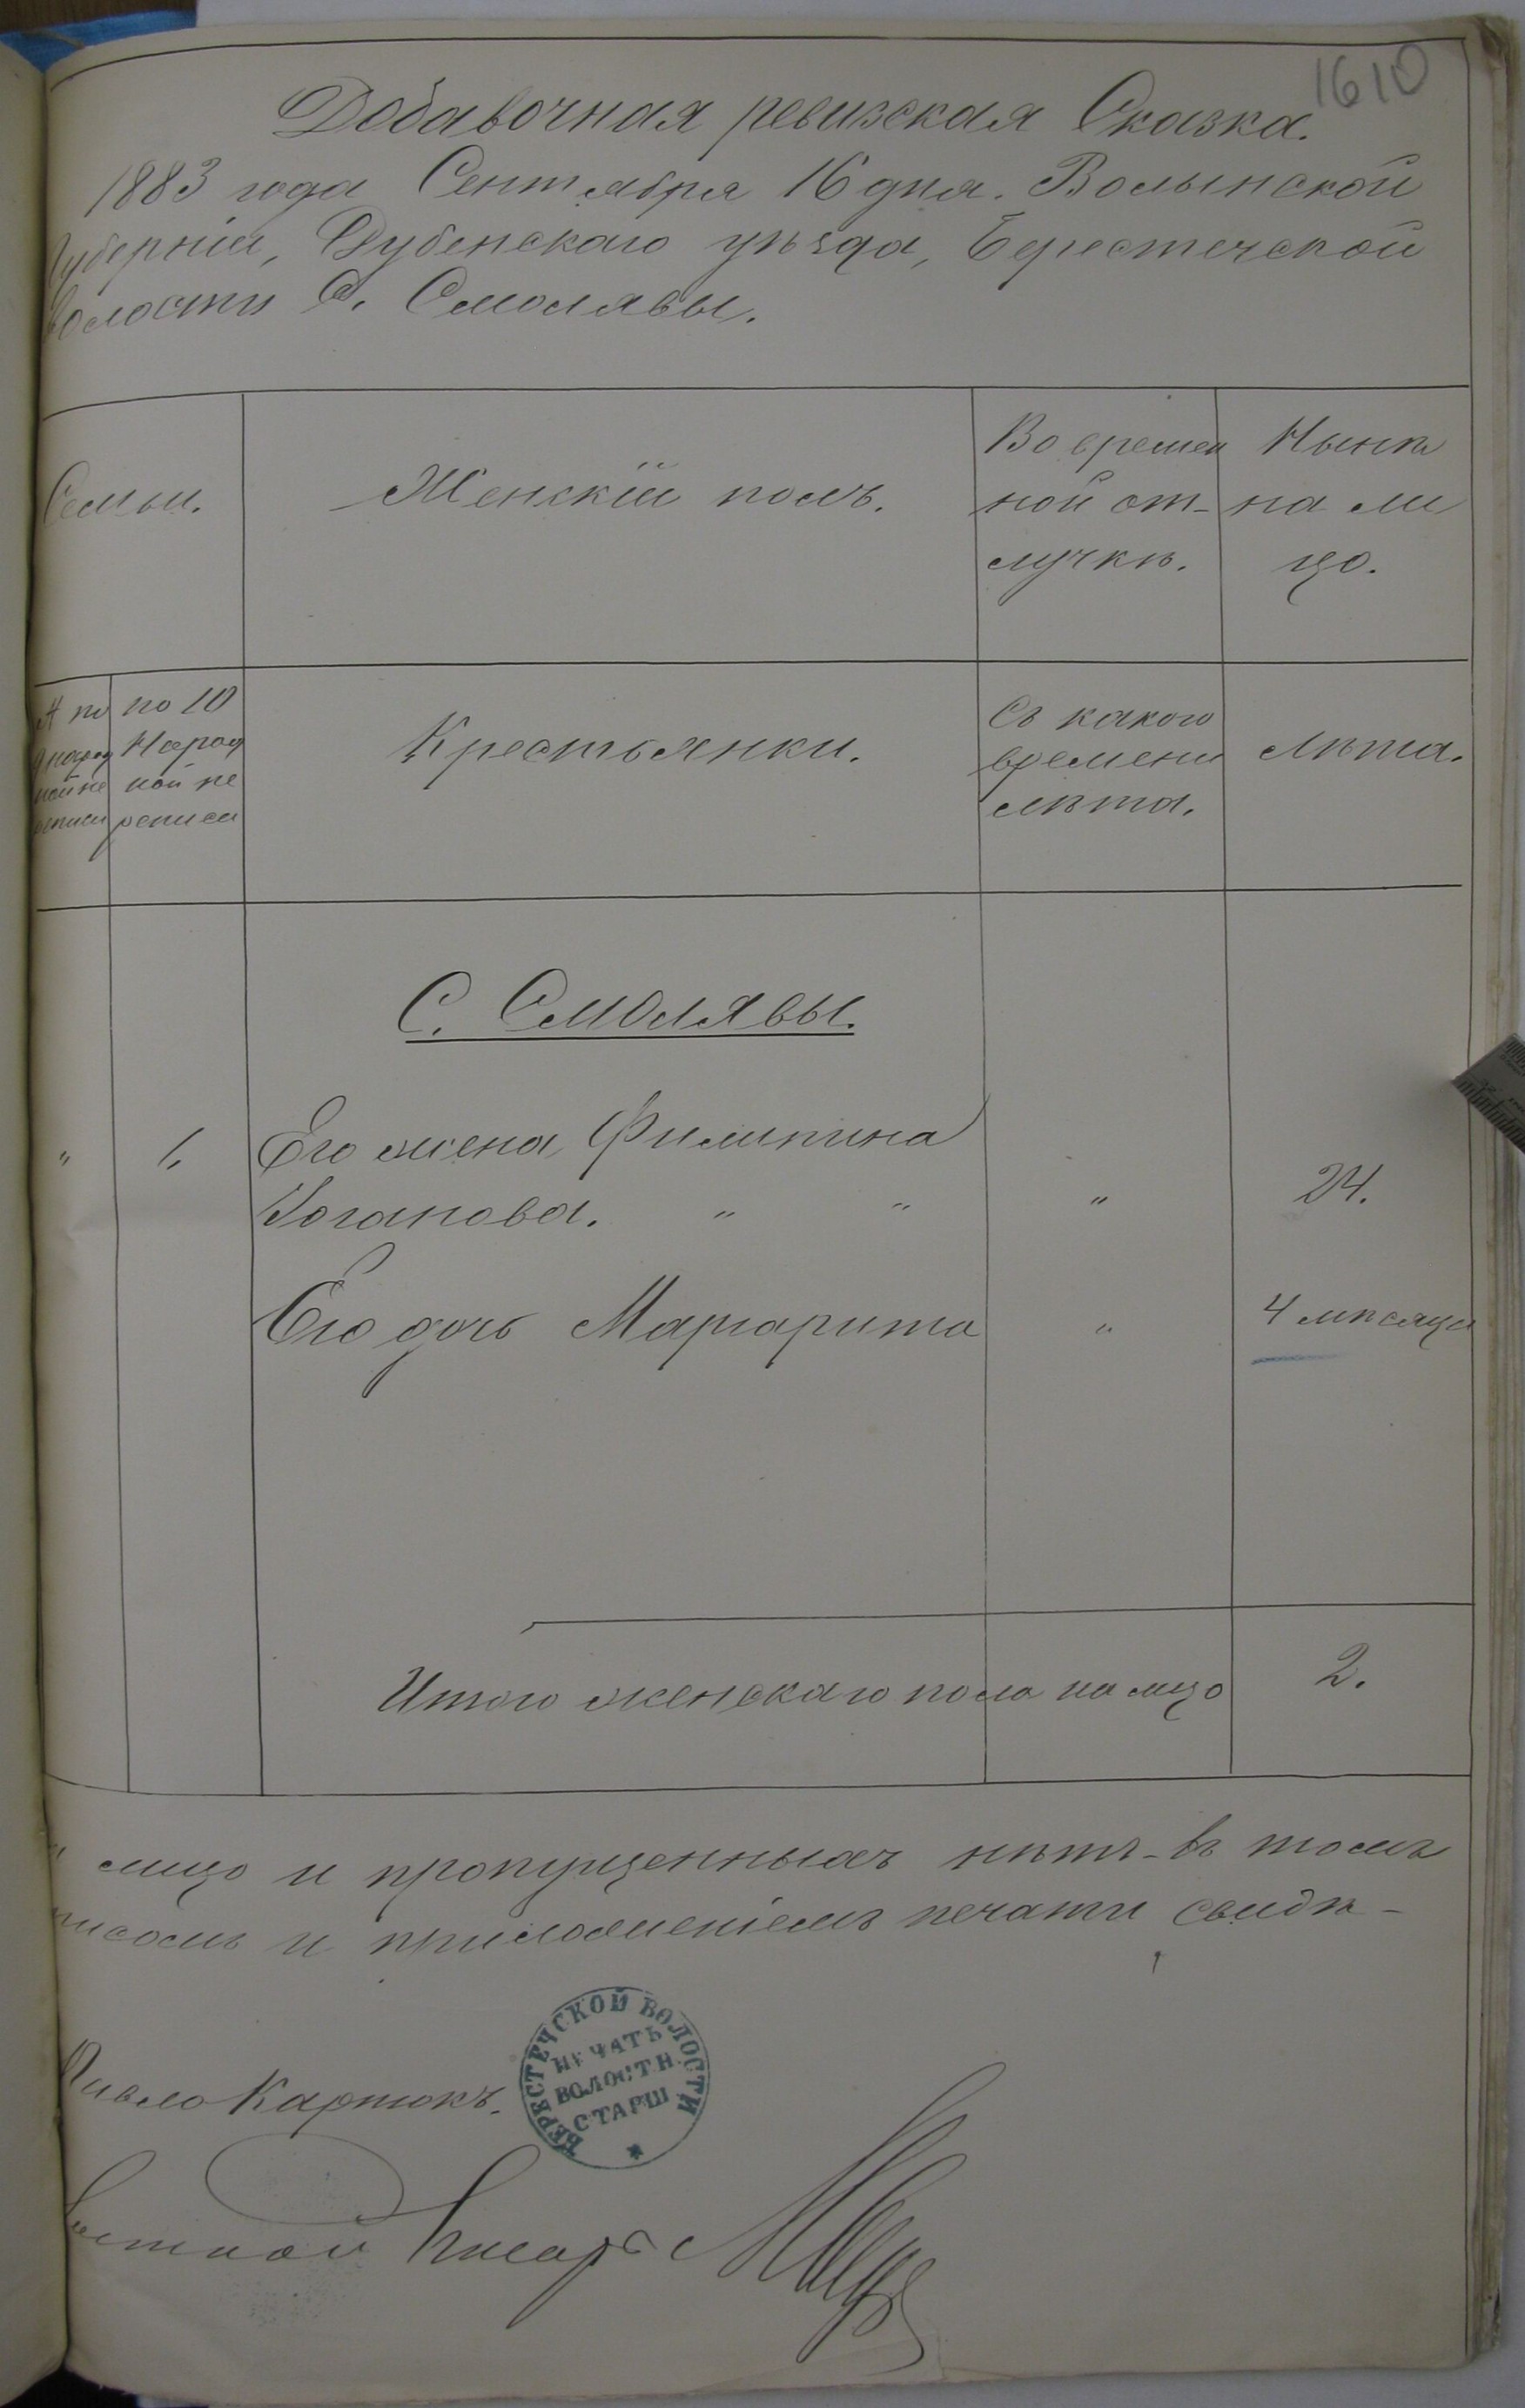 1610
Добавочная ревизская Сказка.
1883 года Сентября 16 дня. Волынской
Губерніи, Дубенскаго уѣзда, Берестечской
волости С. Смолявы.
Семьи.
Женскій полъ.
Во времен
ной от-
лучкѣ.
Нынѣ
на ли
цо.
по 10
Народ
ной пе
реписи
Крестьянки.
Съ какого
времени
лѣта.
Лѣта.
С. Смолявы.
" 1. Его жена Филипина
Іоганова. " " " 24.
Его дочь Маргарита " 4 мѣсяца
Итого женскаго пола на лицо 2.
лицо и пропущенныхъ нѣтъ - въ томъ
и приложеніемъ печати свидѣ-
БЕРЕСТЕЧСКОЙ ВОЛОСТИ
ПЕЧАТЬ
ВОЛОСТН.
СТАРШ
Карпюкъ.
Писарь